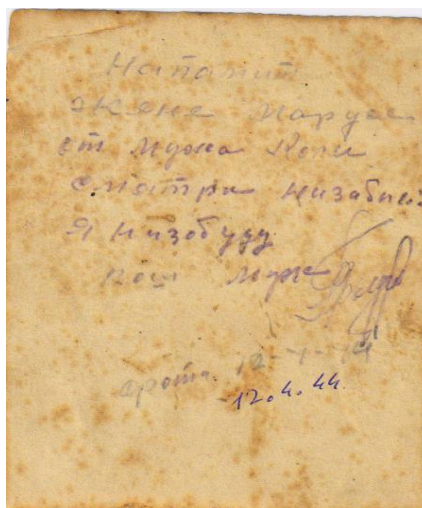 На память
жене Марусе
от мужа Коли
смотри низабыв
Я низобуду
Ваш муж
фото 12-4-44
12.4.44.